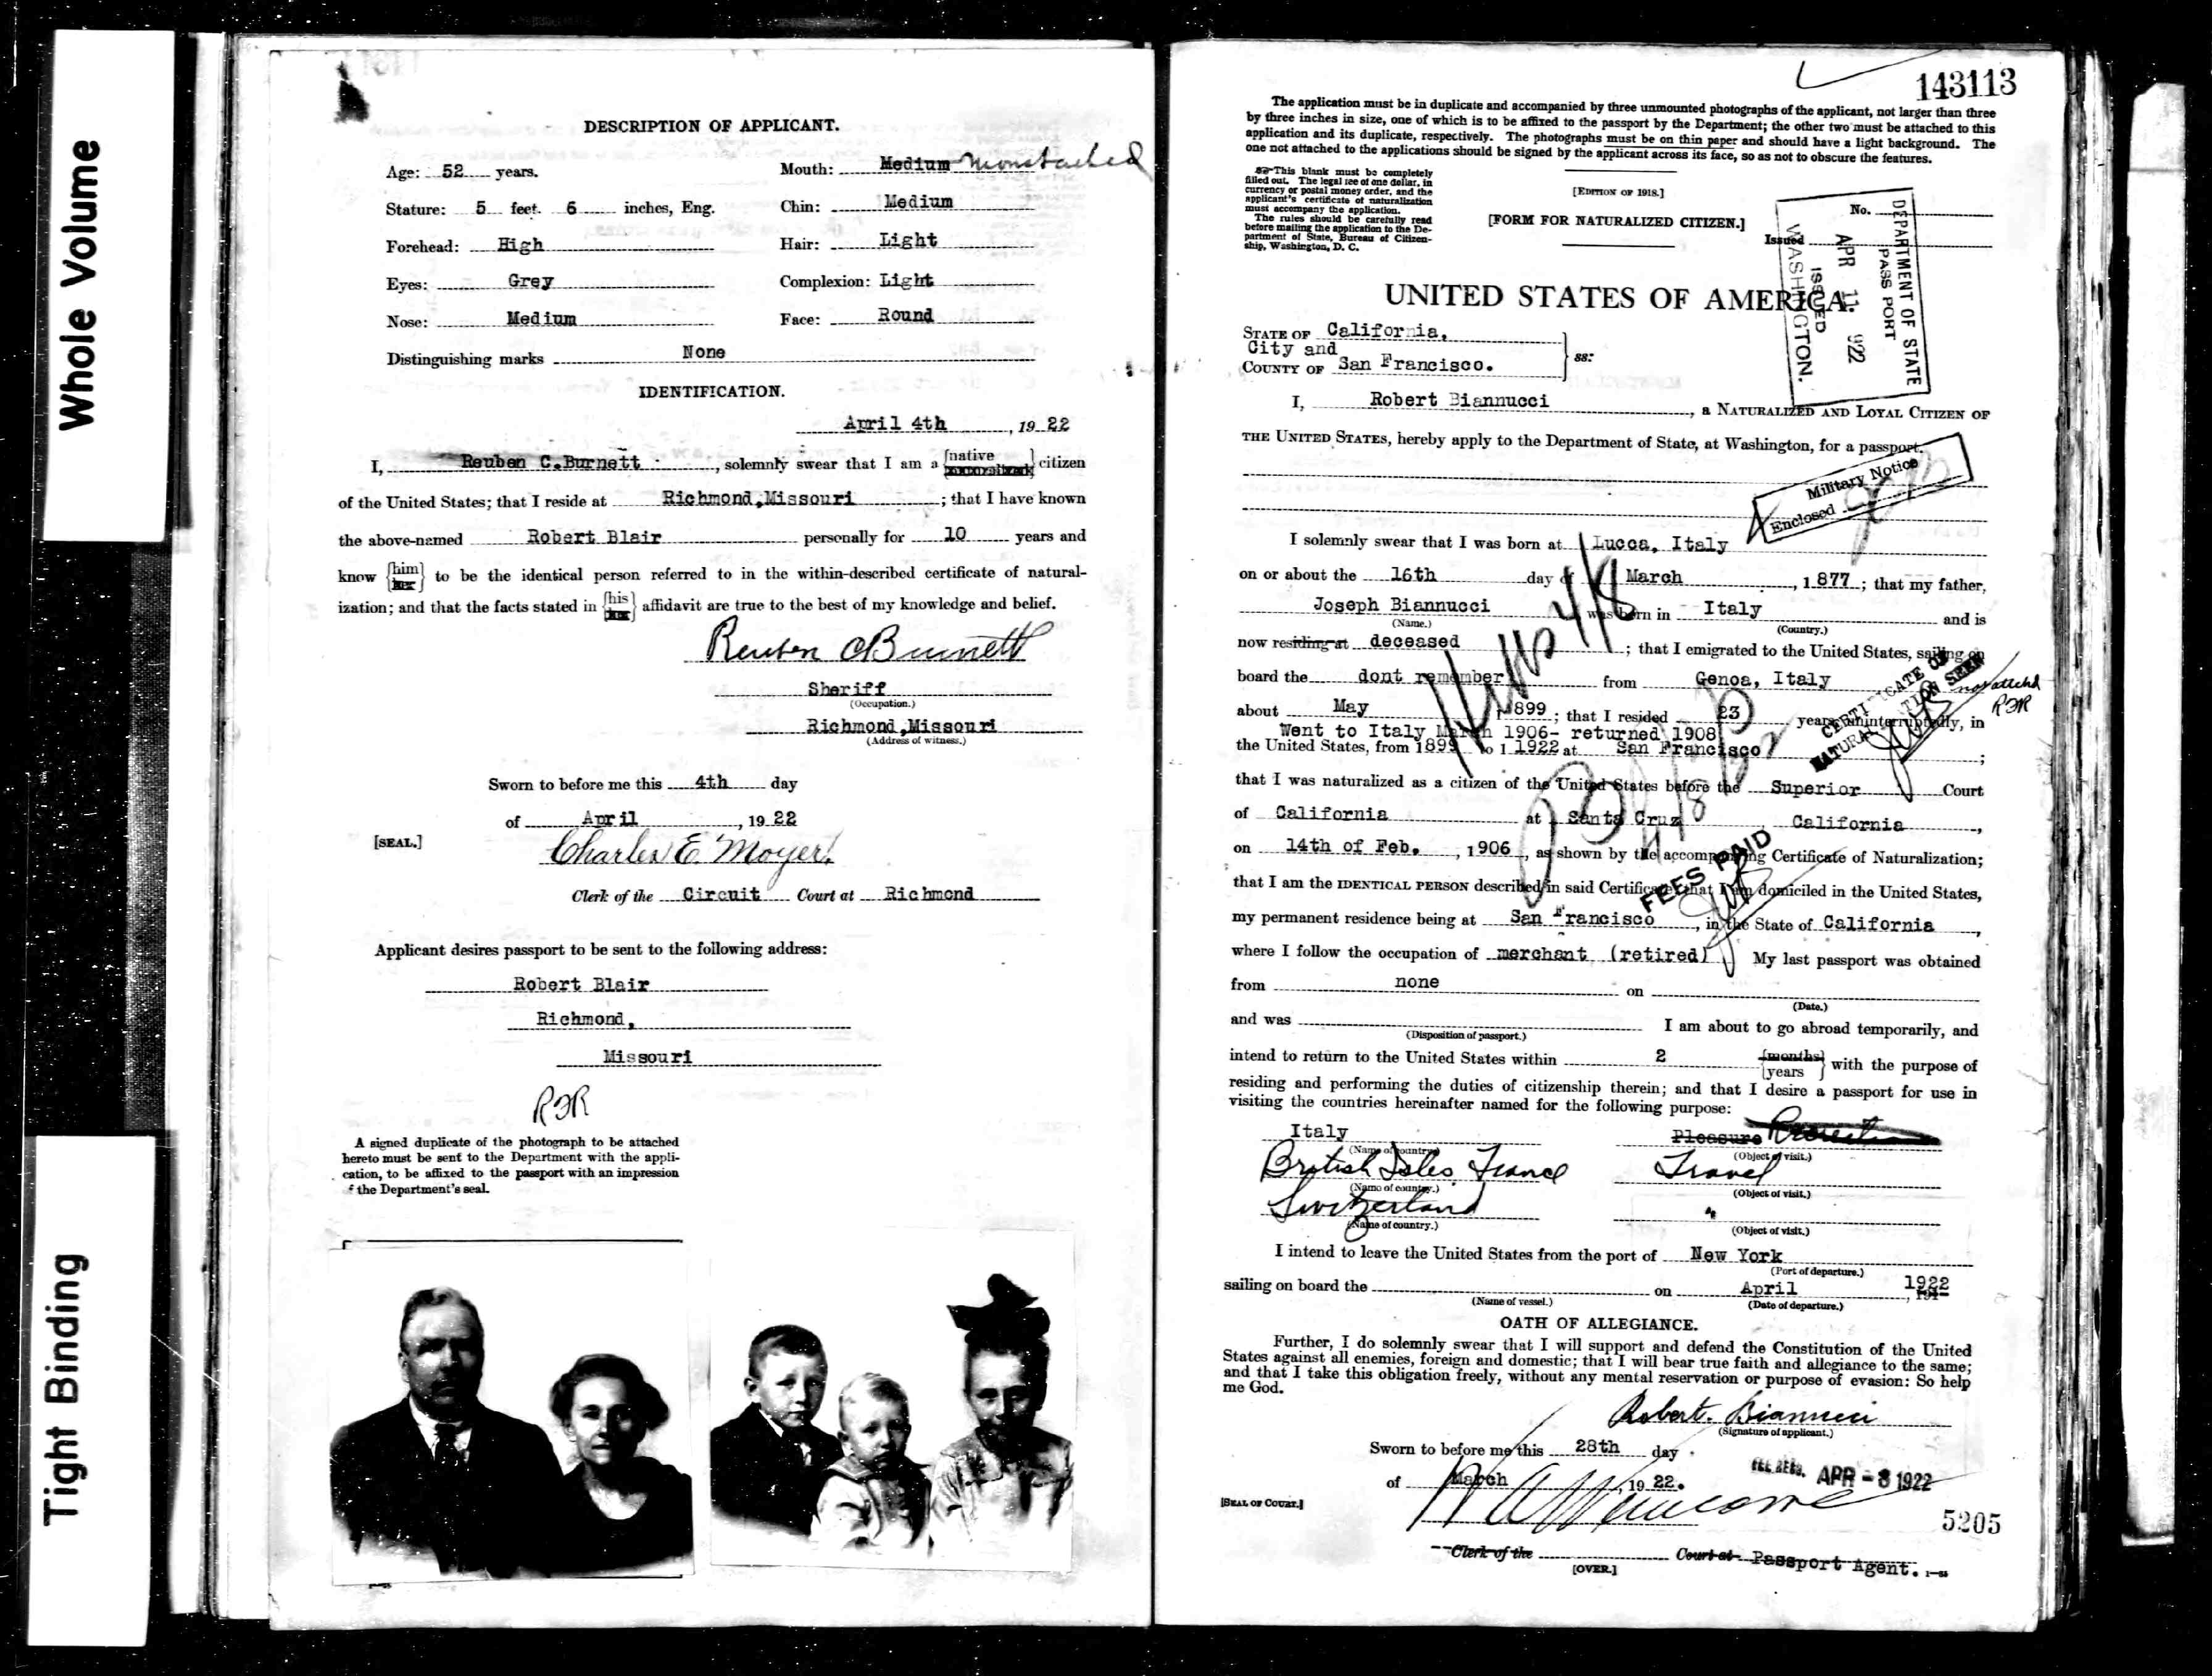 Whole Volume
Tight Binding
DESCRIPTION OF APPLICANT.
Age: 52 years.
Mouth: Medium Moustached
Stature: 5 feet. 6 inches, Eng.
Chin: Medium
Forehead: High
Hair: Light
Eyes: Grey
Complexion: Light
Nose: Medium
Face: Round
Distinguishing marks None
IDENTIFICATION.
April 4th, 1922
I, Reuben C.Burnett, solemnly swear that I am a {native naturalized} citizen
of the United States; that I reside at Richmond,Missouri; that I have known
the above-named Robert Blair personally for 10 years and
know {him her} to be the identical person referred to in the within-described certificate of natural-
ization; and that the facts stated in {his her} affidavit are true to the best of my knowledge and belief.
Reuben C Burnett
Sheriff
(Occupation.)
Richmond,Missouri
(Address of witness.)
Sworn to before me this 4th day
of April, 1922
[SEAL.]
Charles E Moyer.
Clerk of the Circuit Court at Richmond
Applicant desires passport to be sent to the following address:
Robert Blair
Richmond,
Missouri
RJR
A signed duplicate of the photograph to be attached
hereto must be sent to the Department with the appli-
cation, to be affixed to the passport with an impression
f the Department's seal.
143113
The application must be in duplicate and accompanied by three unmounted photographs of the applicant, not larger than three
by three inches in size, one of which is to be affixed to the passport by the Department; the other two must be attached to this
application and its duplicate, respectively. The photographs must be on thin paper and should have a light background. The
one not attached to the applications should be signed by the applicant across its face, so as not to obscure the features.
This blank must be completely
filled out. The legal fee of one dollar, in
currency or postal money order, and the
applicant's certificate of naturalization
must accompany the application.
The rules should be carefully read
before mailing the application to the De-
partment of State, Bureau of Citizen-
ship, Washington, D. C.
[EDITION OF 1918.]
[FORM FOR NATURALIZED CITIZEN.]
No.
Issued
DEPARTMENT OF STATE
PASS PORT
APR 11 922
ISSUED
WASHINGTON.
UNITED STATES OF AMERICA.
STATE OF California,
City and
COUNTY OF San Francisco.
ss:
I, Robert Biannucci, a NATURALIZED AND LOYAL CITIZEN OF
THE UNITED STATES, hereby apply to the Department of State, at Washington, for a passport.
Military Notice
Enclosed
I solemnly swear that I was born at Lucca, Italy
on or about the 16th day of March, 1877; that my father,
Joseph Biannucci was born in Italy and is
(Name.)
(Country.)
now residing at deceased; that I emigrated to the United States, sailing on
board the dont remember from Genoa, Italy
about May 1899; that I resided 23 years, uninterruptedly, in
Went to Italy March 1906- returned 1908
the United States, from 1899 to 1 1922 at San Francisco;
CERTIFICATE OF
NATURALIZATION SEEN
not attched
RJR
that I was naturalized as a citizen of the United States before the Superior Court
of California at Santa Cruz California,
on 14th of Feb., 1906, as shown by the accompanying Certificate of Naturalization;
FEES PAID
that I am the IDENTICAL PERSON described in said Certificate; that I am domiciled in the United States,
my permanent residence being at San Francisco, in the State of California,
where I follow the occupation of merchant (retired) My last passport was obtained
from none on
(Date.)
and was I am about to go abroad temporarily, and
(Disposition of passport.)
intend to return to the United States within 2 {months years} with the purpose of
residing and performing the duties of citizenship therein; and that I desire a passport for use in
visiting the countries hereinafter named for the following purpose:
Italy Pleasure
(Name of country.)
(Object of visit.)
British Isles France Travel
(Name of country.)
(Object of visit.)
Switzerland "
(Name of country.)
(Object of visit.)
I intend to leave the United States from the port of New York
(Port of departure.)
sailing on board the on April 1922
(Name of vessel.)
(Date of departure.)
OATH OF ALLEGIANCE.
Further, I do solemnly swear that I will support and defend the Constitution of the United
States against all enemies, foreign and domestic; that I will bear true faith and allegiance to the same;
and that I take this obligation freely, without any mental reservation or purpose of evasion: So help
me God.
Robert. Biannucci
(Signature of applicant.)
Sworn to before me this 28th day
of March, 1922.
APR - 8 1922
[SEAL OF COURT.]
5205
Clerk of the Court at Passport Agent.
[OVER.]